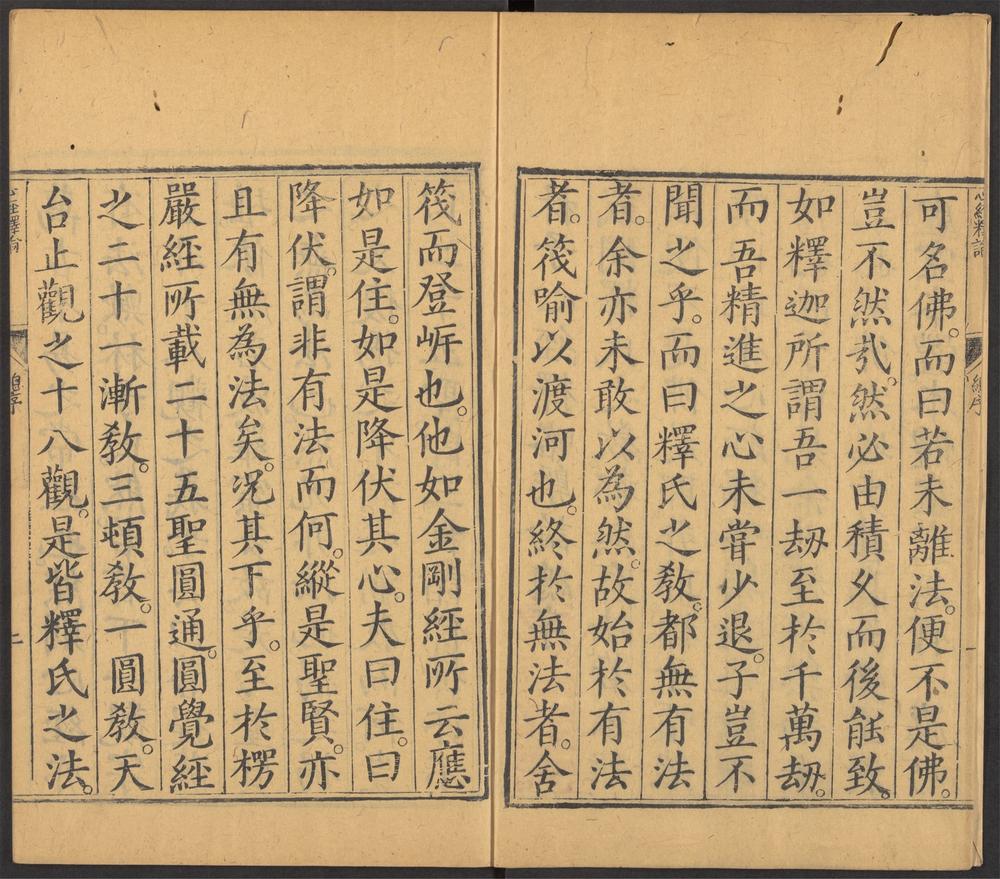 可名佛。而曰若未離法。便不是佛。
豈不然㢤。然必由積久而後能致。
如釋迦所謂吾一刼至於千萬刼。
而吾精進之心未甞少退。子豈不
聞之乎。而曰釋氏之敎。都無有法
者。余亦未敢以為然。故始於有法
者。筏喻以渡河也。終於無法者。舍
筏而登岸也。他如金剛經所云應
如是住。如是降伏其心。夫曰住。曰
降伏。謂非有法而何。縱是聖賢。亦
且有無為法矣。况其下乎。至於楞
嚴經所載二十五聖圓通。圓覺經
之二十一漸敎。三頓敎。一圓敎。天
台止觀之十八觀。是皆釋氏之法。